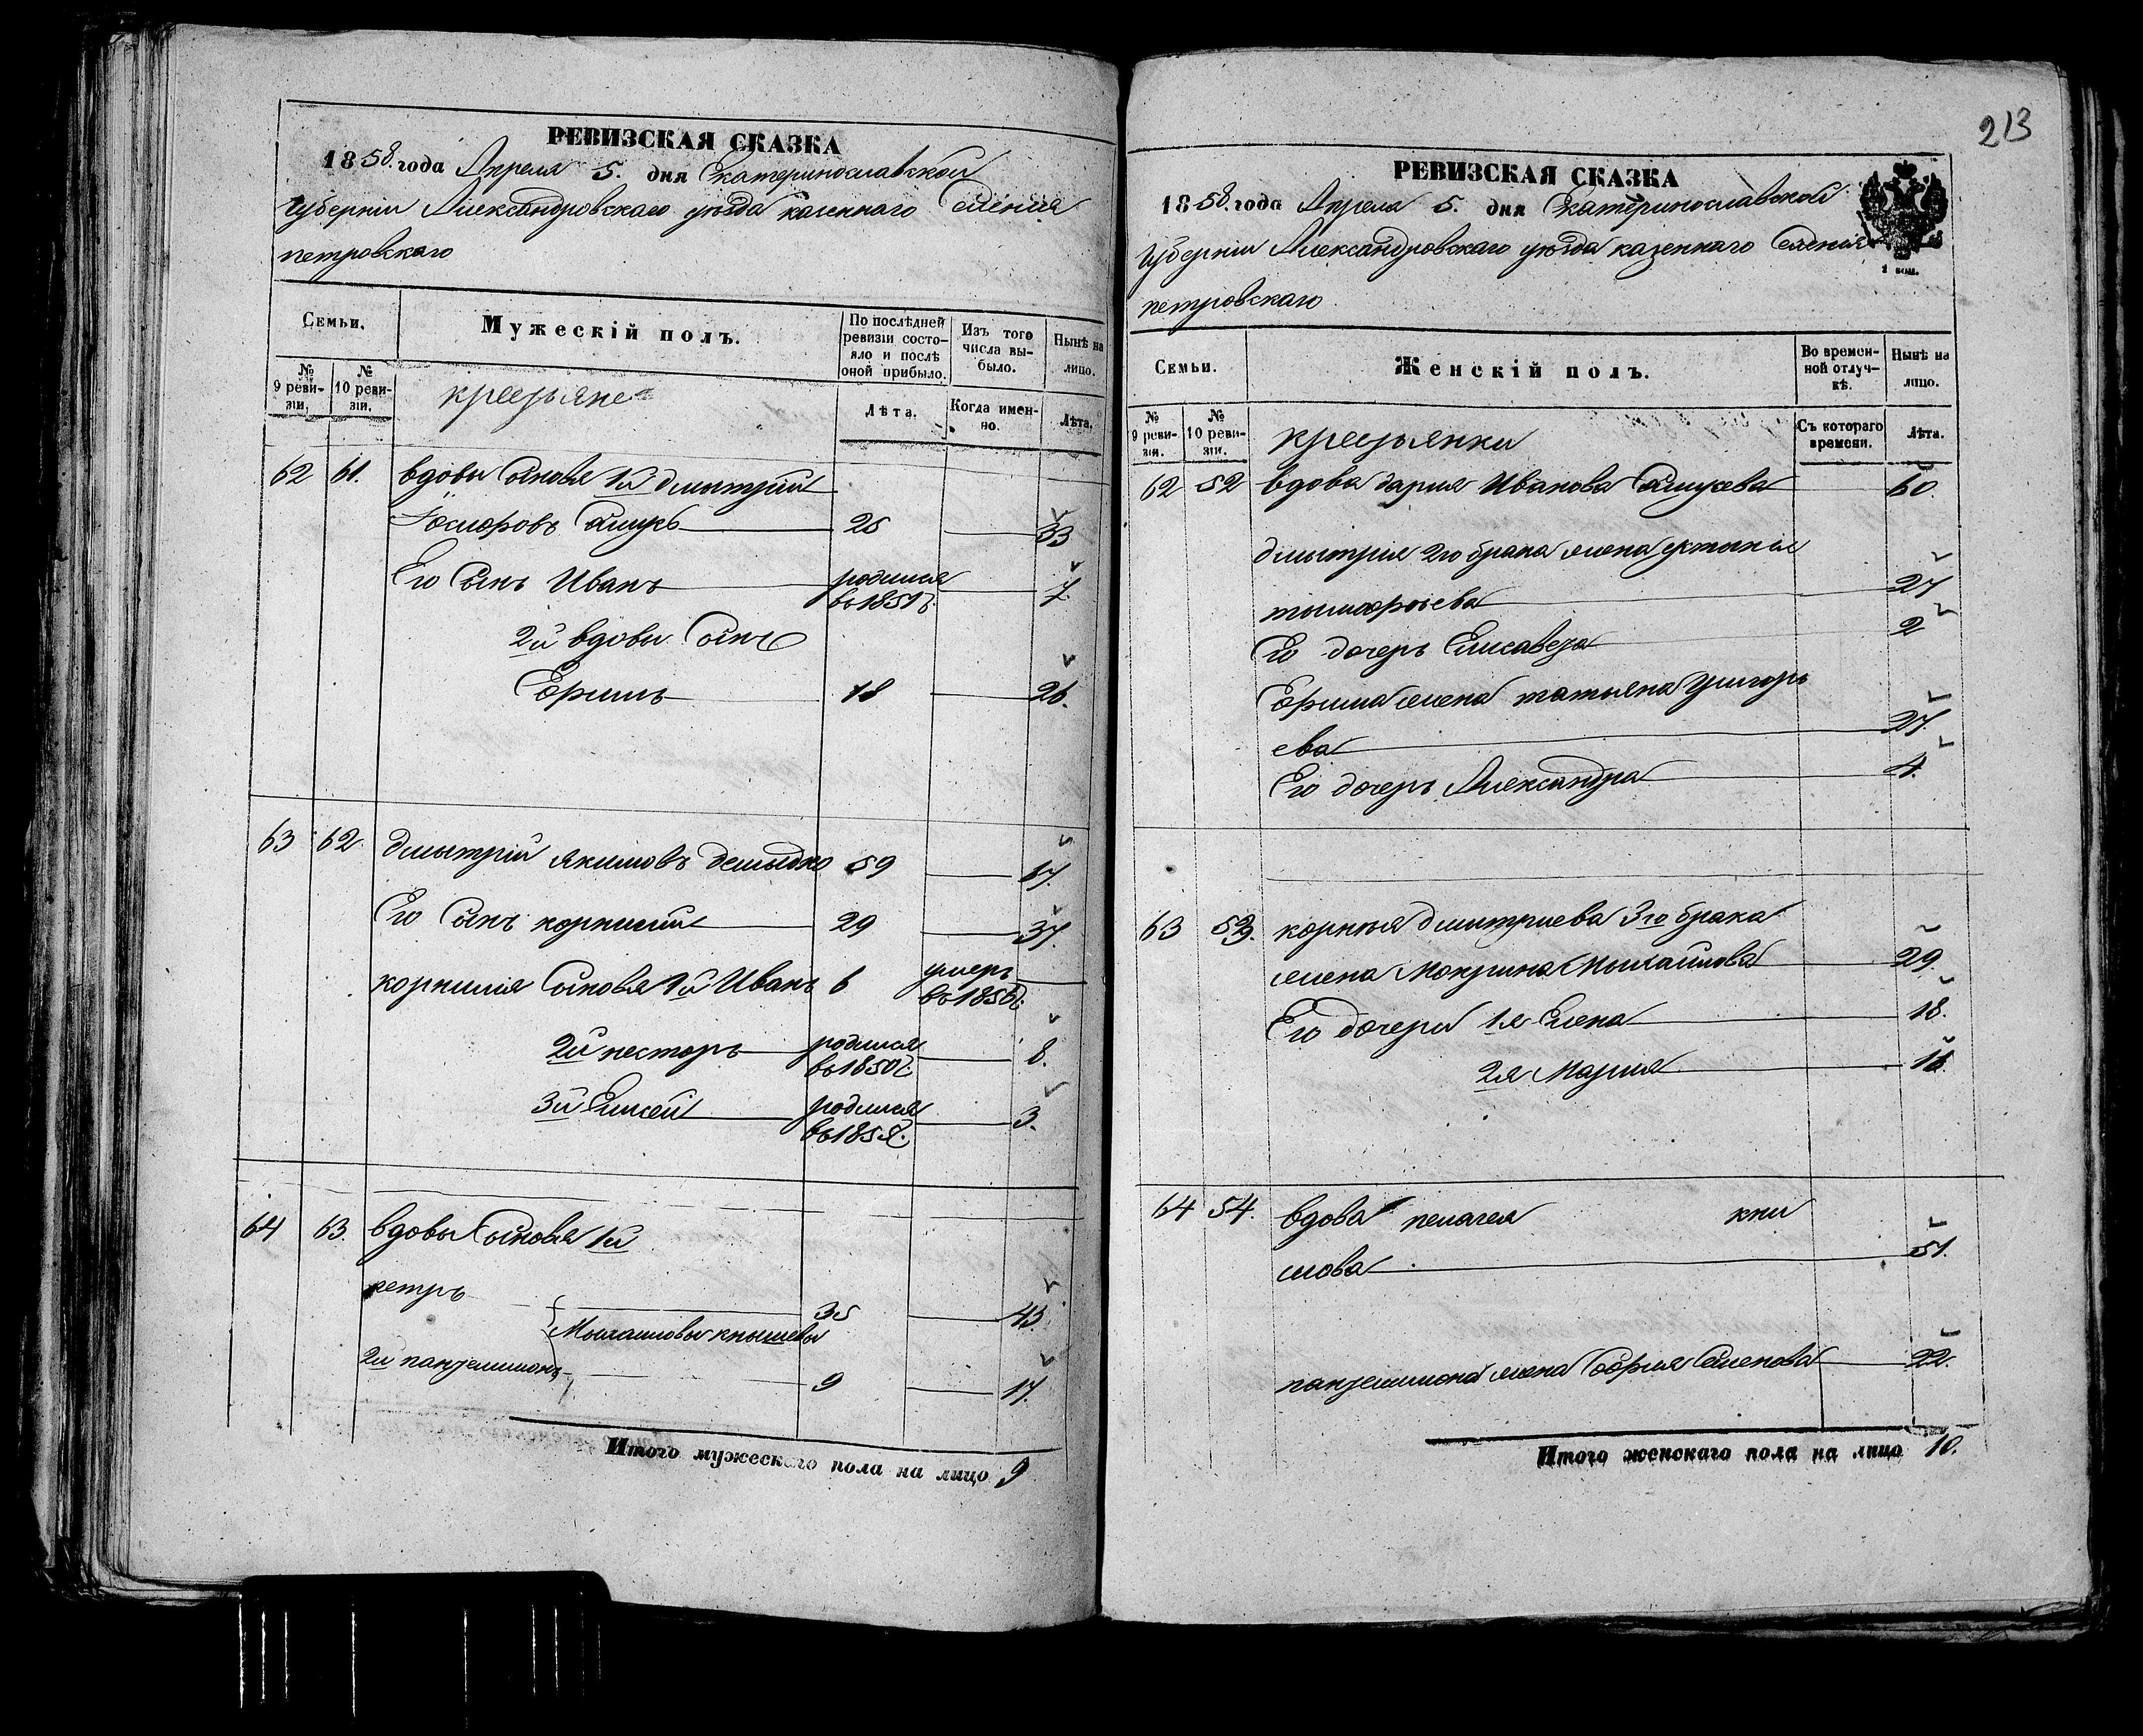 РЕВИЗСКАЯ СКАЗКА
1858 года Апреля 5. дня Екатеринославской
Губерніи Александровскаго уѣзда казеннаго селенія
петровскаго
Семьи.
Мужескій полъ.
По послѣдней ревизіи состояло и послѣ оной прибыло.
Изъ того числа выбыло.
Нынѣ на лицо.
№ 9 ревизіи.
№ 10 ревизіи.
крестьяне
Лѣта.
Когда именно.
Лѣта.
62 61. вдовы сыновья 1й дмытрий
25 33
Его сынъ Иванъ родился въ 1851 г. 7.
2й вдовы сынъ
Ефимъ 18 26.
63 62. дмытрій якимовъ демыдко 59 67.
Его сынъ корнилий 29 37.
корнилія сыновья 1й Иванъ 6 умеръ въ 1856 г.
2й несторъ родился въ 1850 г. 8.
3й Елисей родился въ 185 3.
64 63. вдовы сыновья 1й
петръ 35 43.
Мыхаиловы кнышевы
2й пантелимонъ 9 17.
Итого мужескаго пола на лицо 9
213
РЕВИЗСКАЯ СКАЗКА
1858 года Апреля 5. дня Екатеринославской
Губерніи Александровскаго уѣзда казеннаго селенія
петровскаго
1 коп.
Семьи.
Женскій полъ.
Во временной отлучкѣ.
Нынѣ на лицо.
№ 9 ревизіи.
№ 10 ревизіи.
крестьянки
Съ котораго времени.
Лѣта.
62 52 вдова дария Иванова 60.
дмытрия 2го брака жена
27
Его дочеръ Елисавета 2
Ефима жена татьяна Григорь
ева 27.
Его дочеръ Александра 4.
63 53. дмитриева 3го брака
жена Мокрина Мыхайлова 29.
Его дочери 1я Елена 18.
2я Мария 16.
64 54. вдова пелагея
51.
пантелимона жена София Семенова 22.
Итого женскаго пола на лицо 10.